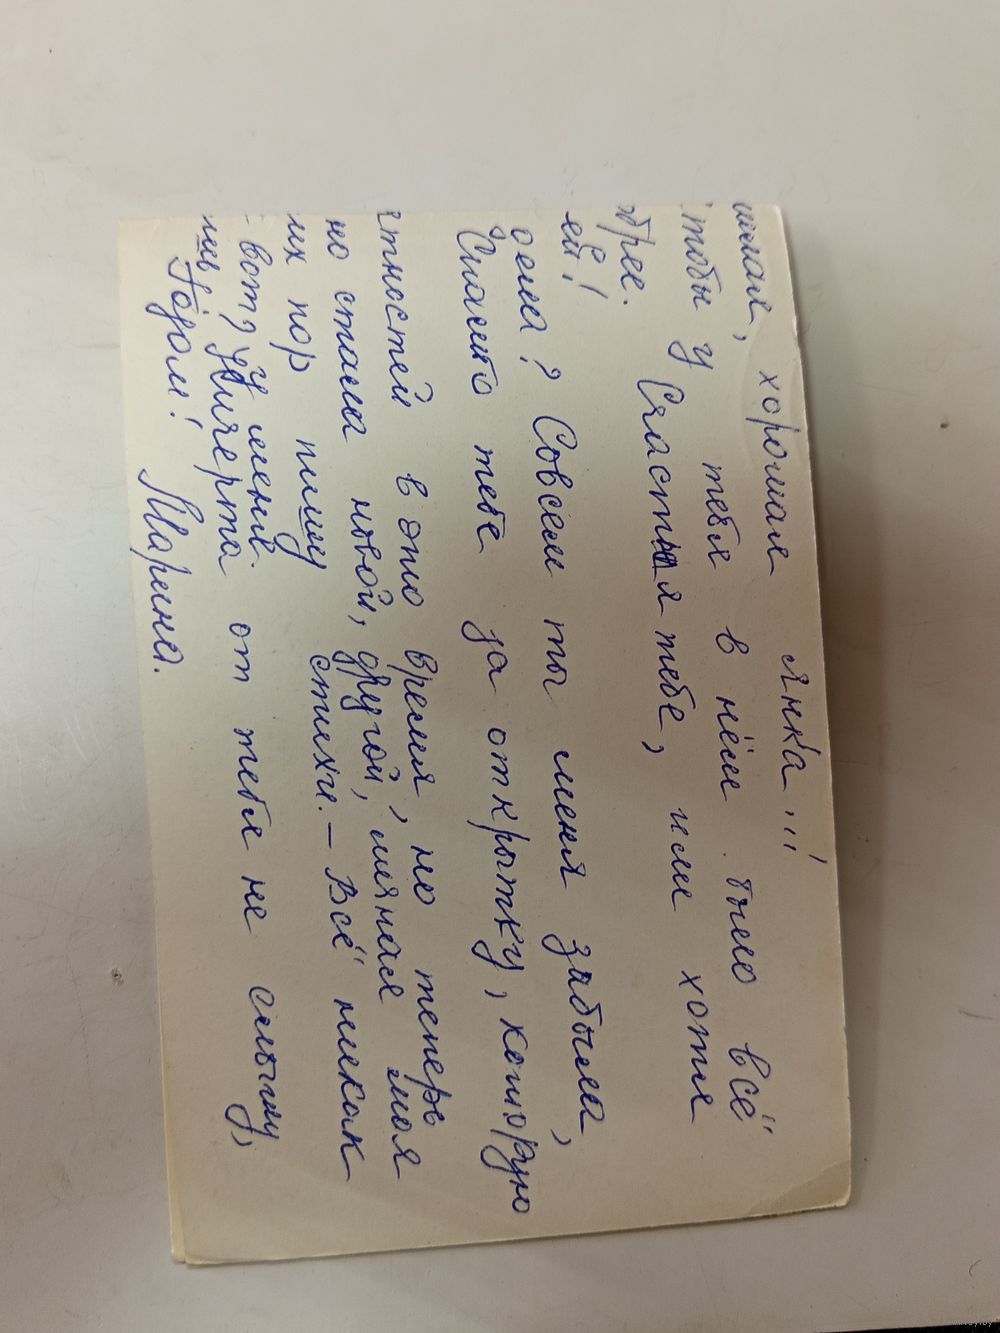 милая, хорошая Янка!!!
чтобы у тебя в нём было всё
обрее. Счастья тебе, или хотя
ей!
Совсем ты меня забыла,
Спасибо тебе за открытку, которую
тностей в это время, но теперь
но стала новой, другой, милая моя
их пор пишу стихи. – Всё никак
вот, у меня.
ни черта от тебя не слышу,
Годом! Марина.